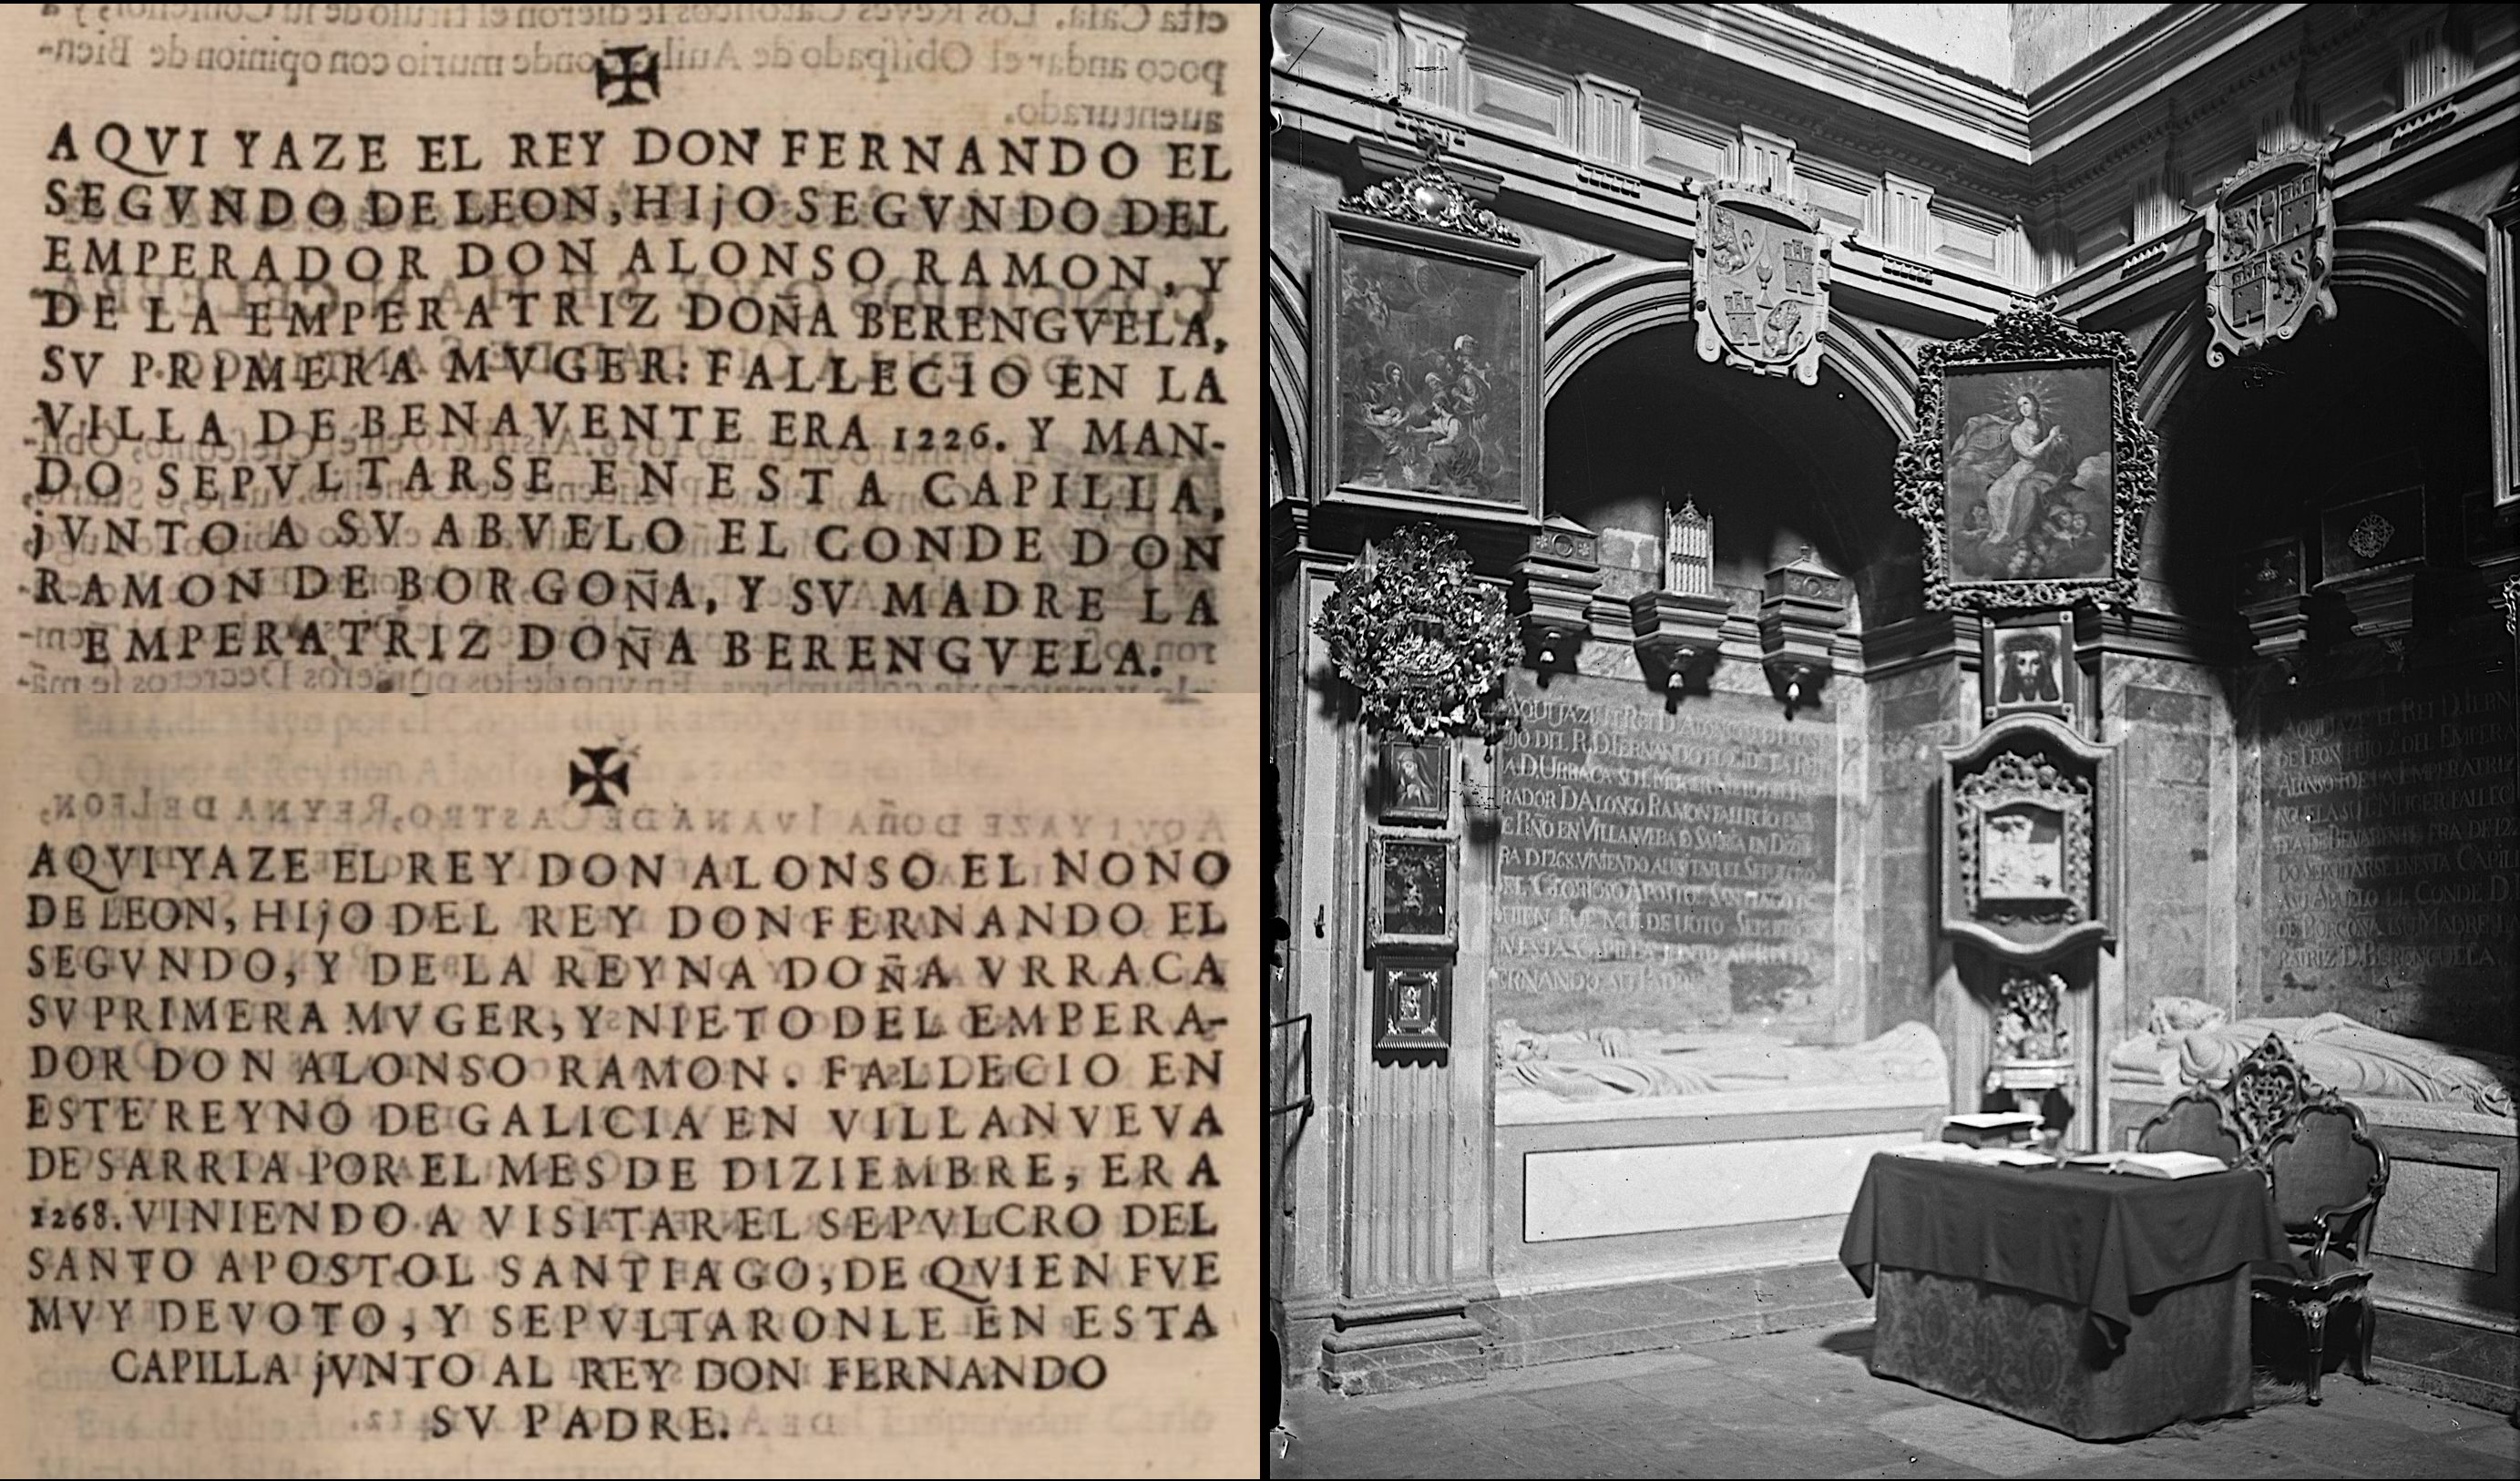 AQVI YAZE EL REY DON FERNANDO EL
SEGVNDO DE LEON, HIJO SEGVNDO DEL
EMPERADOR DON ALONSO RAMON, Y
DE LA EMPERATRIZ DOÑA BERENGVELA,
SV PRIMERA MVGER: FALLECIO EN LA
VILLA DE BENAVENTE ERA 1226. Y MAN-
DO SEPVLTARSE EN ESTA CAPILLA,
jVNTO A SV ABVELO EL CONDE DON
RAMON DE BORGOÑA, Y SV MADRE LA
EMPERATRIZ DOÑA BERENGVELA.
AQVI YAZE EL REY DON ALONSO EL NONO
DE LEON, HIjO DEL REY DON FERNANDO EL
SEGVNDO, Y DE LA REYNA DOÑA VRRACA
SV PRIMERA MVGER, Y NIETO DEL EMPERA-
DOR DON ALONSO RAMON. FALLECIO EN
ESTE REYNO DE GALICIA EN VILLANVEVA
DE SARRIA POR EL MES DE DIZIEMBRE, ERA
1268. VINIENDO A VISITAR EL SEPVLCRO DEL
SANTO APOSTOL SANTIAGO, DE QVIEN FVE
MVY DEVOTO, Y SEPVLTARONLE EN ESTA
CAPILLA jVNTO AL REY DON FERNANDO
SV PADRE.
AQUI JAZE EL REI D. ALONSO
IJO DEL R. D. FERNANDO EL 2. DE LA REI
A D. URRACA SU MUGER NIETO DEL
RADOR D ALONSO RAMON FALLECIO
E RNO EN VILLANUEBA D SARRIA EN DIZIE
RA D 1268. VINIENDO A UISITAR EL SEPULCRO
DEL GLORIOSO APOSTOL SANTIAGO
UIEN FUE MUI DE UOTO SEPU
N ESTA CAPILLA JUNTO AL REI D.
ERNANDO SU PADRE
AQUI JAZE EL REI D. FERN
DE LEON HIJO 2º DEL EMPERA
ALONSO I DE LA EMPERATRIZ
SU MUGER FALLEC
DE BENABENTE ERA DE 12
DO SEPULTARSE EN ESTA CAPI
A SU ABUELO EL CONDE D
DE BORGOÑA I SU MADRE
RATRIZ D. BERENGUELLA